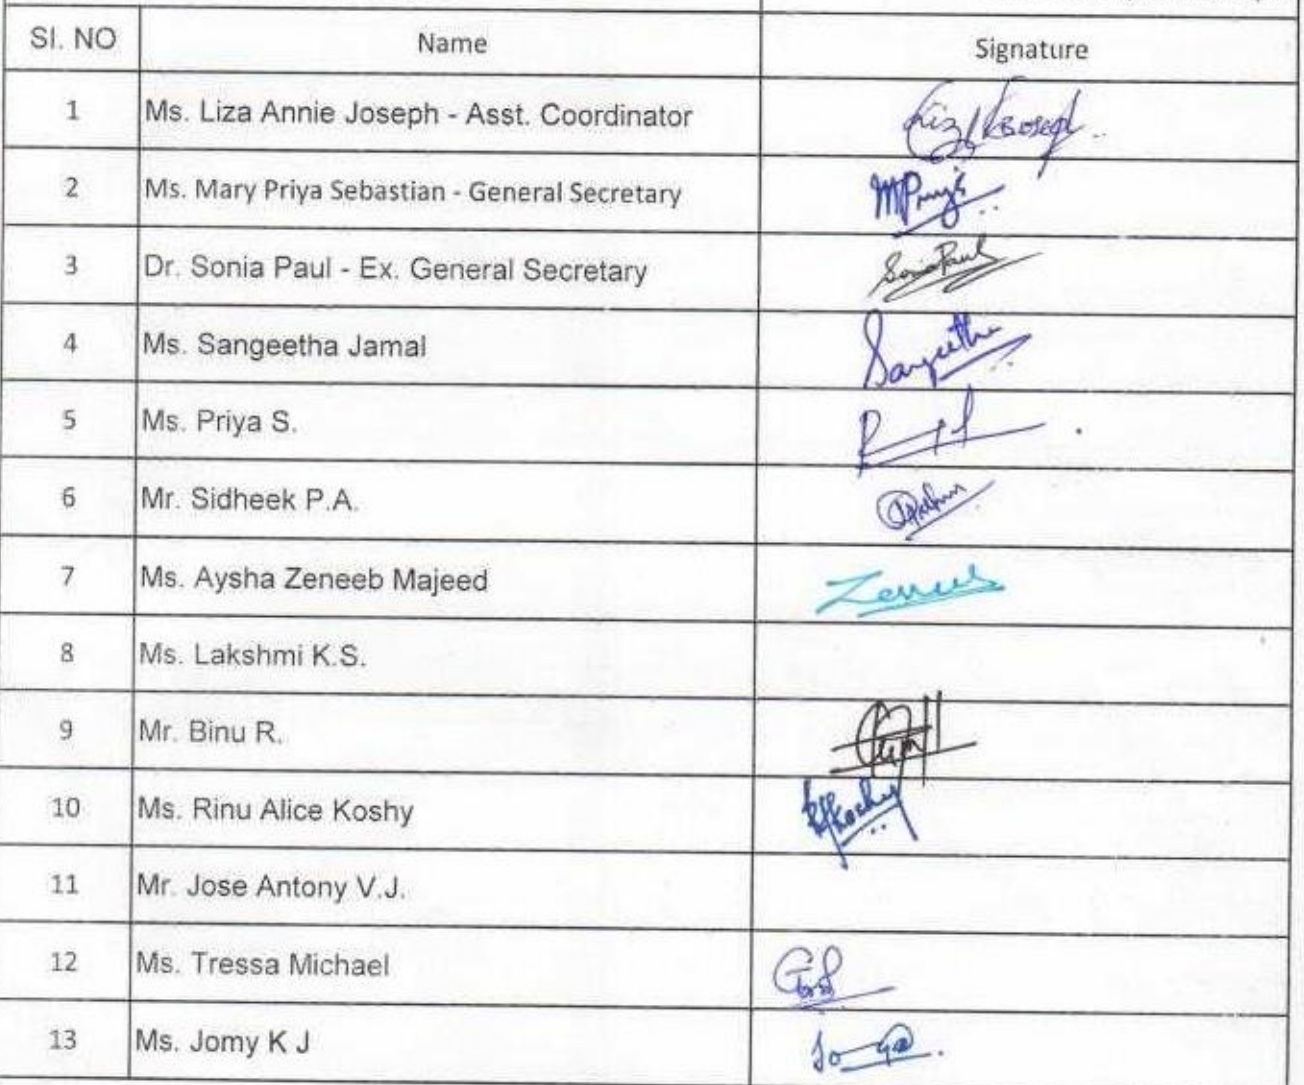 Sl. NO Name Signature
1 Ms. Liza Annie Joseph - Asst. Coordinator
2 Ms. Mary Priya Sebastian - General Secretary MPriya
3 Dr. Sonia Paul - Ex. General Secretary Sonia Paul
4 Ms. Sangeetha Jamal Sangeetha
5 Ms. Priya S.
6 Mr. Sidheek P.A.
7 Ms. Aysha Zeneeb Majeed
8 Ms. Lakshmi K.S.
9 Mr. Binu R.
10 Ms. Rinu Alice Koshy RAKoshy
11 Mr. Jose Antony V.J.
12 Ms. Tressa Michael
13 Ms. Jomy K J